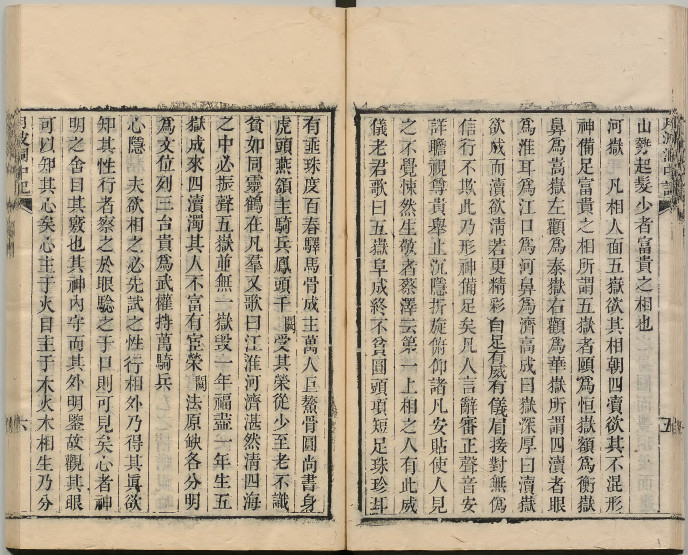 月波洞中記
山勢起髮少者富貴之相也
河嶽　凡相人面五嶽欲其相朝四瀆欲其不混形
神備足富貴之相所謂五嶽者頤爲恒嶽額爲衡嶽
鼻爲嵩嶽左顴爲泰嶽右顴爲華嶽所謂四瀆者眼
爲淮耳爲江口爲河鼻爲濟高成曰嶽深厚曰瀆嶽
欲成而瀆欲清若更精彩自足有威有儀眉接對無僞
信行不欺此乃形神備足矣凡人言辭審正聲音安
詳瞻視尊貴舉止沉隱折旋俯仰諸凡安貼使人見
之不覺悚然生敬者蔡澤云第一上相之人有此威
儀老君歌曰五嶽阜成終不貧圓頭項短足珠珍耳
五
有垂珠度百春驛馬骨成主萬人巨鰲骨圓尚書身
虎頭燕頷主騎兵鳳頭千闕受其榮從少至老不識
貧如同靈鶴在凡羣又歌曰江淮河濟湛然清四海
之中必振聲五嶽並無一嶽毀一年福盡一年生五
嶽成來四瀆濁其人不富有宦榮闕法原缺各分明
爲文位列三台貴爲武權持萬騎兵
心隱　夫欲相之必先試之性行相外乃得其眞欲
知其性行者察之於眼驗之于口則可見矣心者神
明之舍目其竅也其神內守而其外明鑒故觀其眼
可以知其心矣心主于火目主于木火木相生乃分
月波洞中記
六